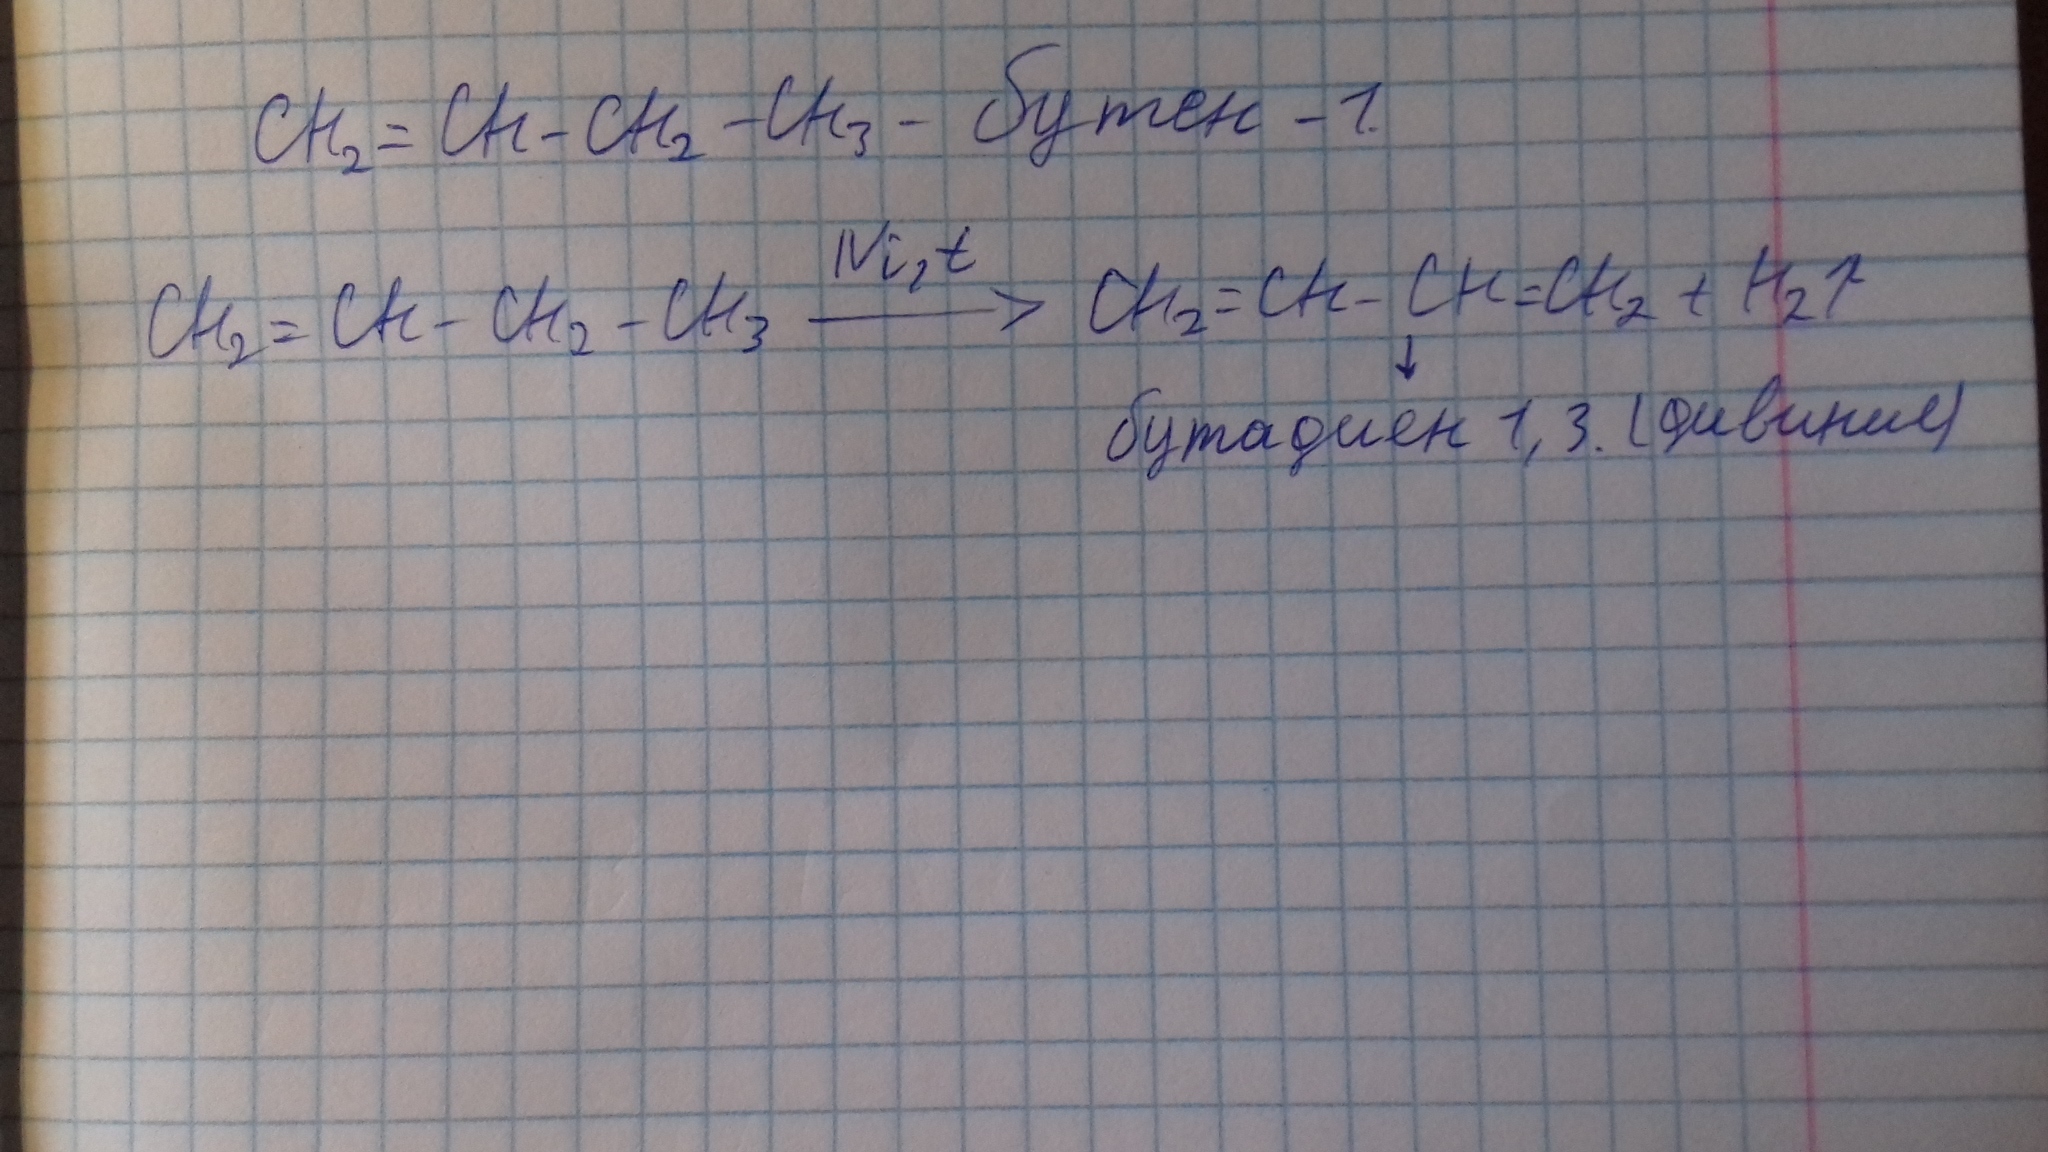 CH₂=CH-CH₂-CH₃ - бутен-1.
Ni, t
CH₂=CH-CH₂-CH₃ ⟶ CH₂=CH-CH=CH₂ + H₂↑
↓
бутадиен 1, 3. (дивинил)